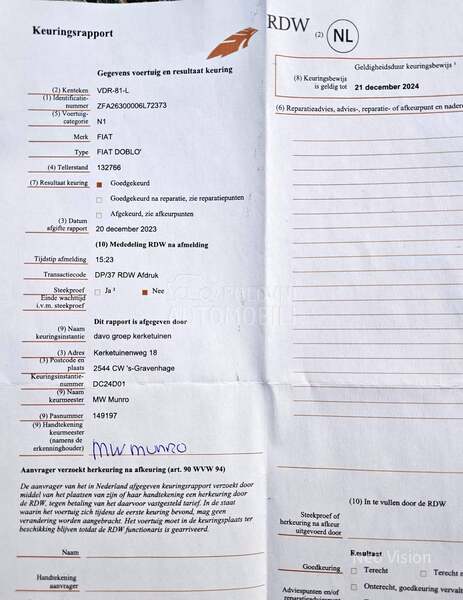 Keuringsrapport
RDW (2) NL
Gegevens voertuig en resultaat keuring
(2) Kenteken VDR-81-L
(1) Identificatie-
nummer ZFA26300006L72373
(5) Voertuig-
categorie N1
Merk FIAT
Type FIAT DOBLO'
(4) Tellerstand 132766
(7) Resultaat keuring Goedgekeurd
Goedgekeurd na reparatie, zie reparatiepunten
Afgekeurd, zie afkeurpunten
(3) Datum
afgifte rapport 20 december 2023
(10) Mededeling RDW na afmelding
Tijdstip afmelding 15:23
Transactiecode DP/37 RDW Afdruk
Steekproef Ja ³ Nee
Einde wachttijd
i.v.m. steekproef
Dit rapport is afgegeven door
(9) Naam
keuringsinstantie davo groep kerketuinen
(3) Adres Kerketuinenweg 18
(3) Postcode en
plaats 2544 CW 's-Gravenhage
Keuringsinstantie-
nummer DC24D01
(9) Naam
keurmeester MW Munro
(9) Pasnummer 149197
(9) Handtekening
keurmeester
(namens de
erkenninghouder) MW MUNRO
Aanvrager verzoekt herkeuring na afkeuring (art. 90 WVW 94)
De aanvrager van het in Nederland afgegeven keuringsrapport verzoekt door
middel van het plaatsen van zijn of haar handtekening een herkeuring door
de RDW, tegen betaling van het daarvoor vastgesteld tarief. In de staat
waarin het voertuig zich tijdens de eerste keuring bevond, mag geen
verandering worden aangebracht. Het voertuig moet in de keuringsplaats ter
beschikking blijven totdat de RDW functionaris is gearriveerd.
Naam
Handtekening
aanvrager
Geldigheidsduur keuringsbewijs ¹
(8) Keuringsbewijs
is geldig tot 21 december 2024
(6) Reparatieadvies, advies-, reparatie- of afkeurpunt en nader
(10) In te vullen door de RDW
Steekproef of
herkeuring na afkeur
uitgevoerd door
Resultaat
Goedkeuring Terecht Terecht
Onterecht, goedkeuring verval
Adviespunten en/of
Neo Vision